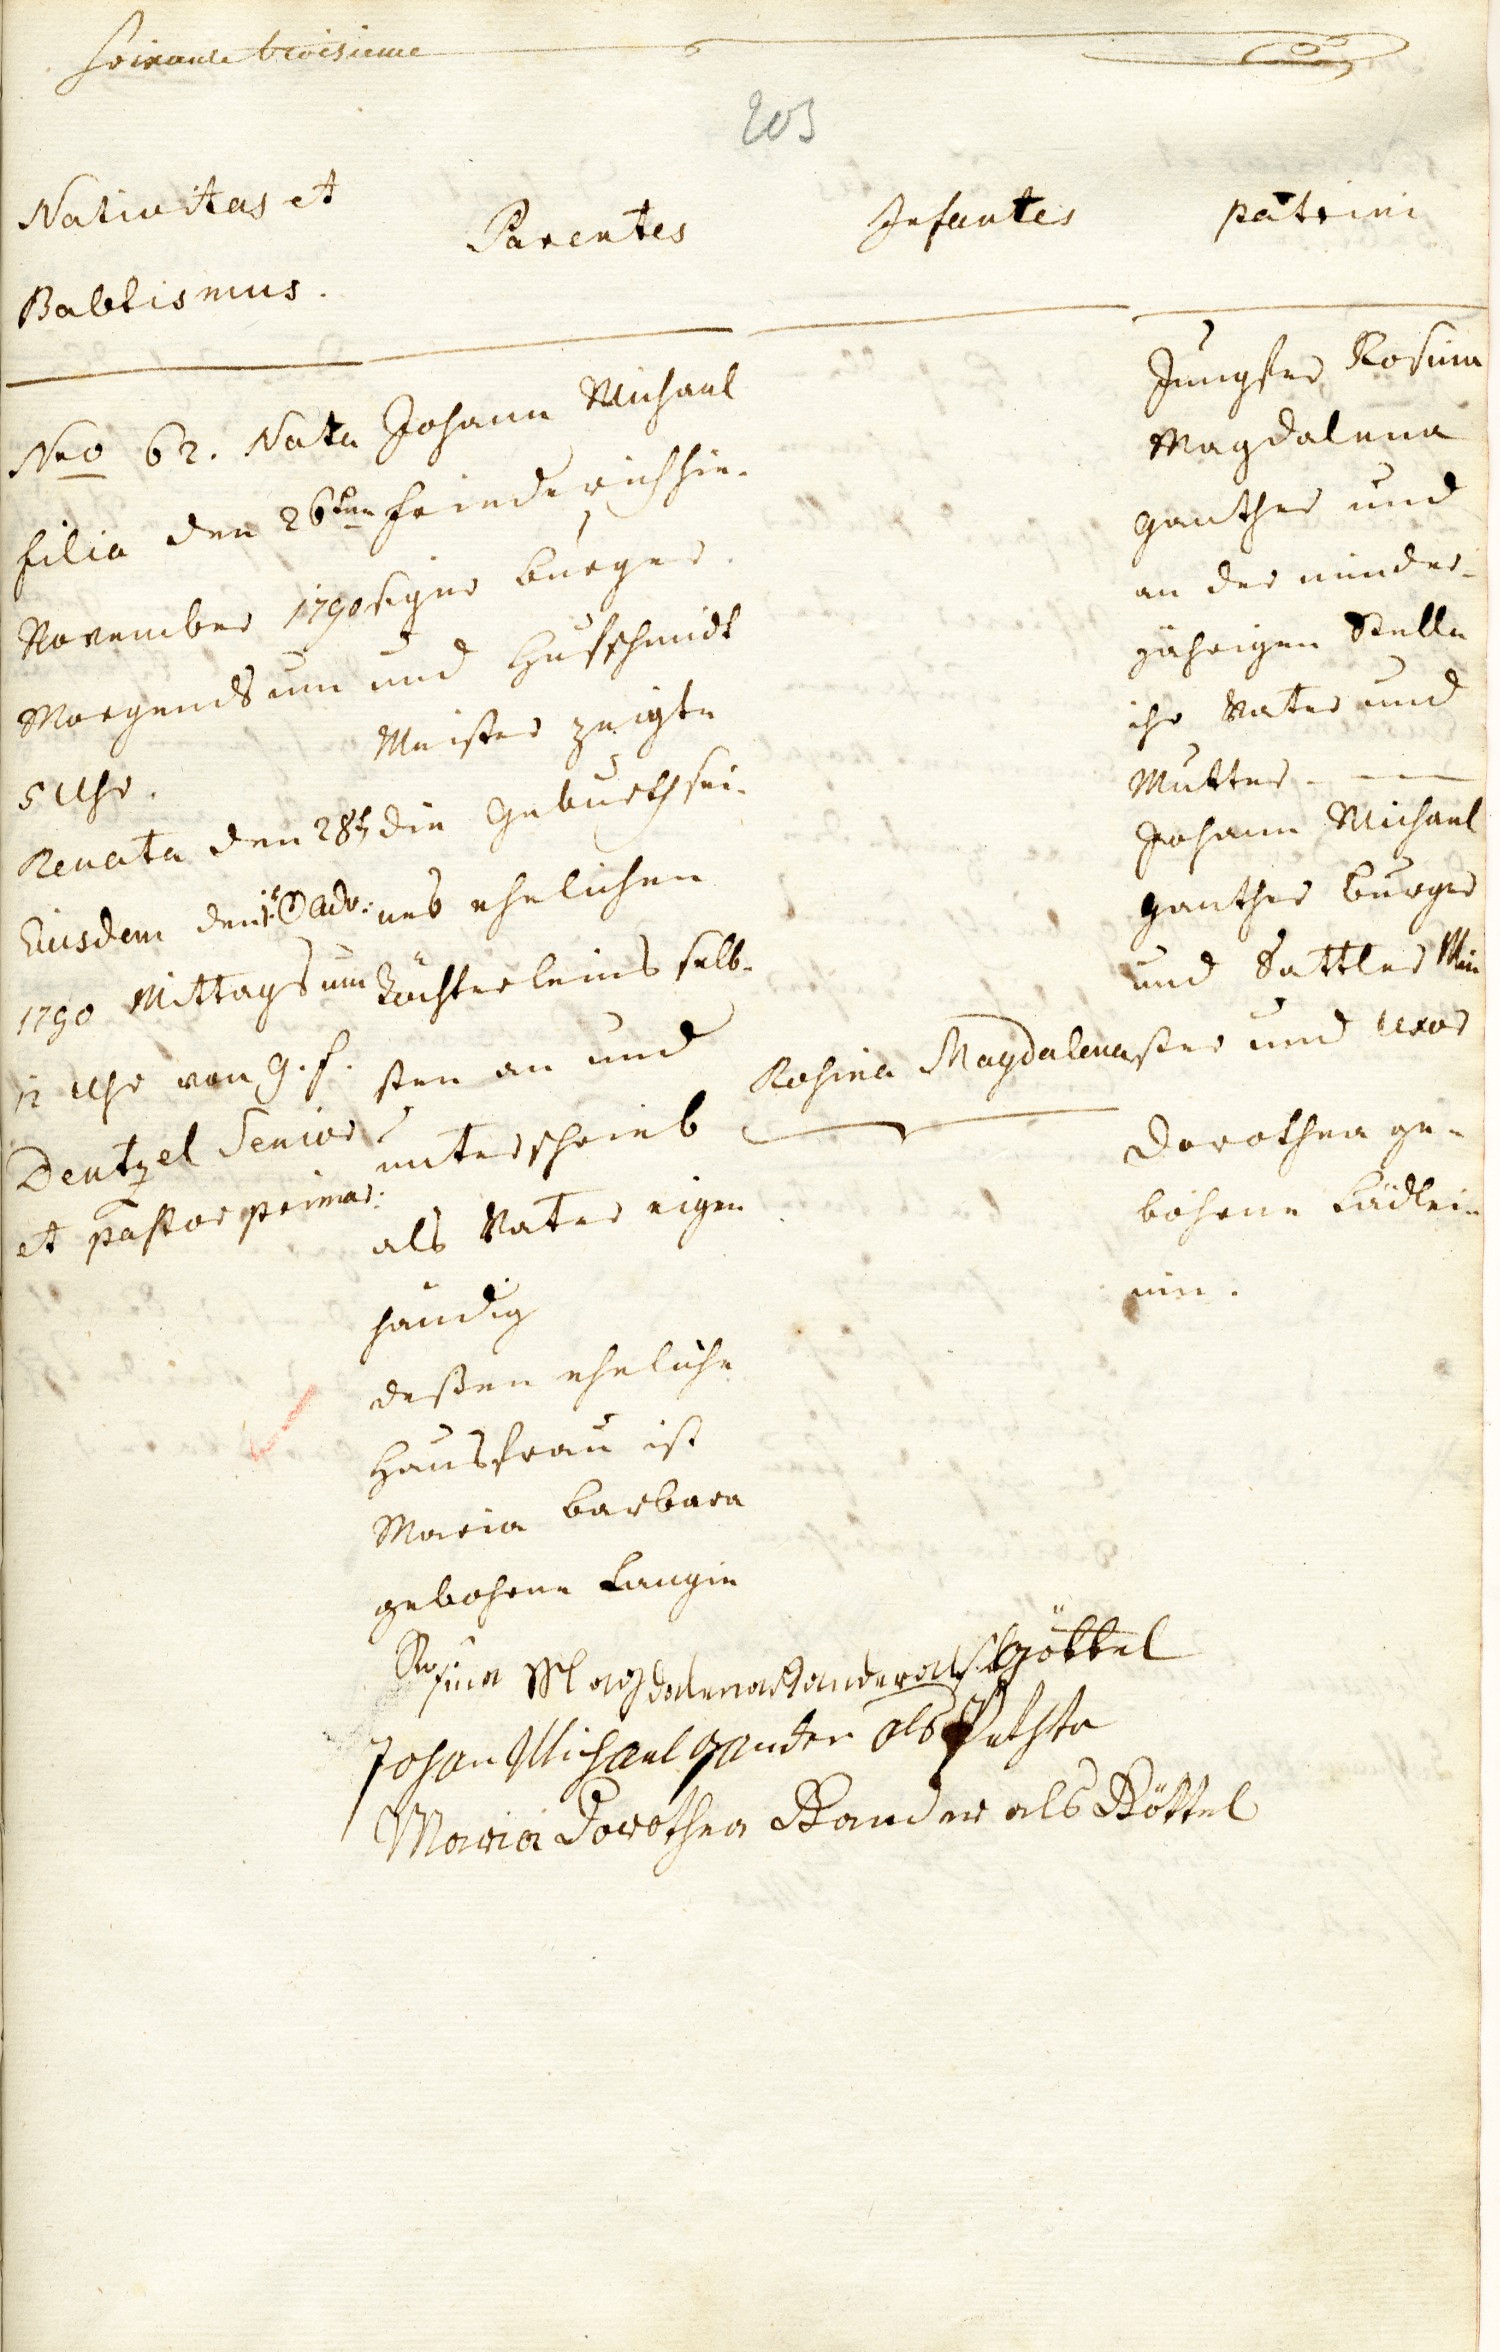 Soixante troisieme
203
Nativitas et
Babtismus.
Parentes
Infantes
patrini
Nro 62. Nata
filia den 26ten
November 1790
Morgends um
5 Uhr.
Renata den 28t
Eiusdem den 1t ☉ adv:
1790 Mittags um
12 Uhr von G. f.
Dentzel Senior
et pastor primar:
Johann Michael
Friederich hie-
siger burger
und Hufschmidt
Meister zeigte
die Geburth sei-
nes ehelichen
Töchterleins selb-
sten an und
unterschrieb
als Vater eigen
händig
deßen eheliche
Hausfrau ist
Maria barbara
gebohrne Langin
Rosina Magdalena
Jungfer Rosina
Magdalena
ganther und
an der minder-
jährigen Stelle
ihr Vater und
Mutter - - -
Johann Michael
ganther burger
und Sattler Mei
ster und uxor
Dorothea ge-
bohrne
nin.
Rosina Magdalena Gander als göttel
Johan Michael gander als
Maria Dorothea Gander als Göttel